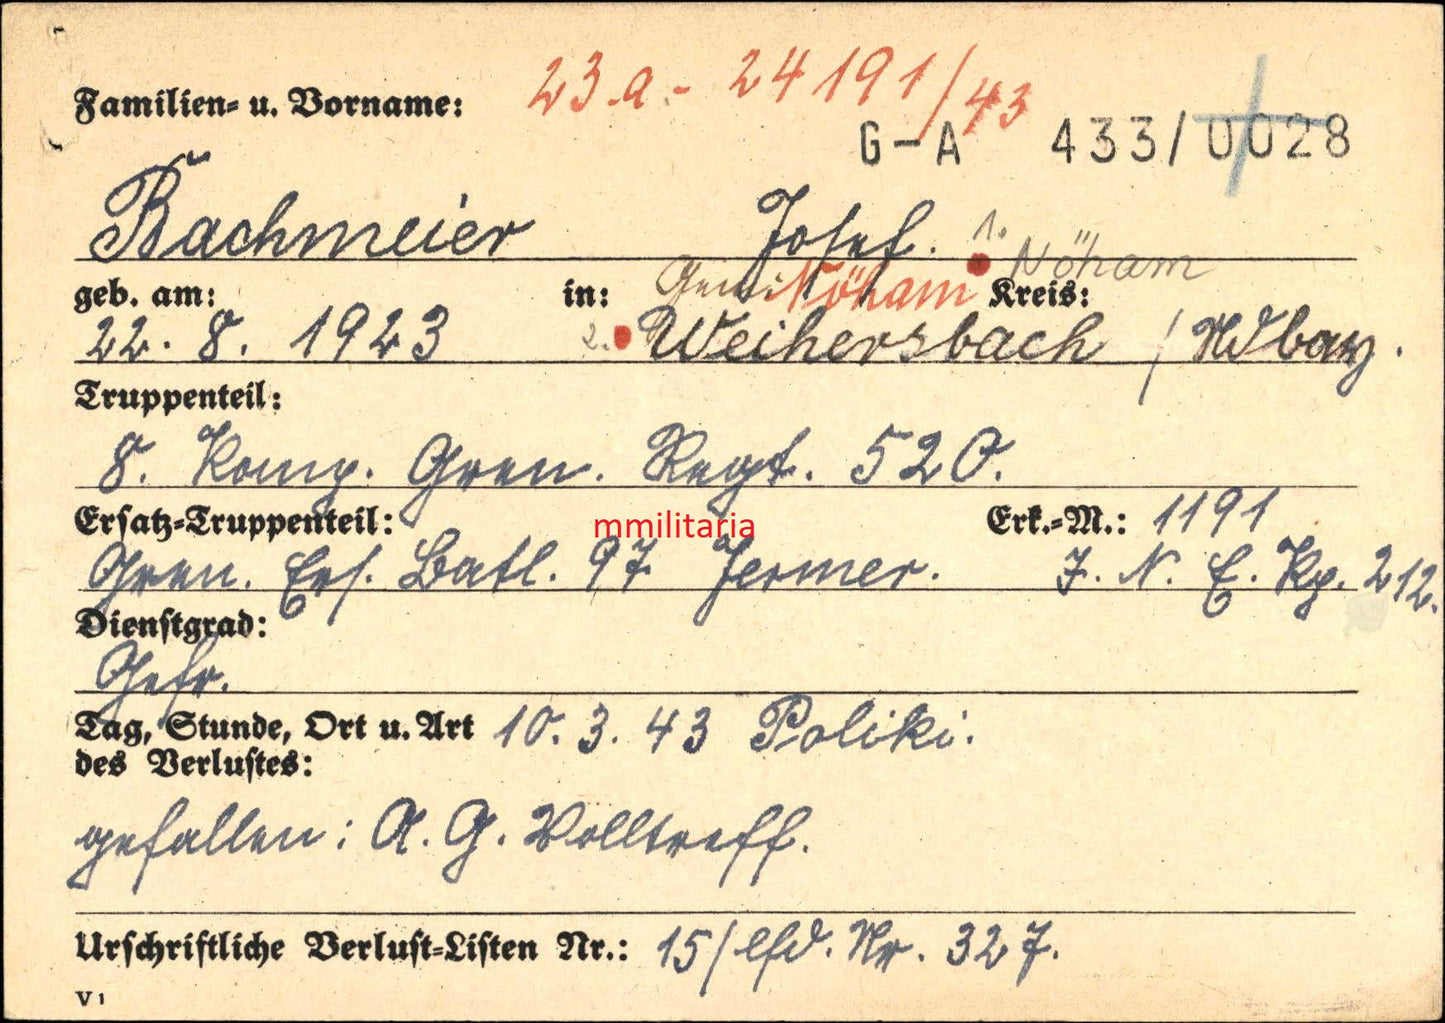 Familien- u. Vorname: 23.a.- 24191/43
G-A 433/0028
Bachmeier Josef. 1. Nöham
geb. am: in: Gem. Nöham Kreis:
22. 8. 1923 2. Weihersbach / Ndbay.
Truppenteil:
8. Komp. Gren. Regt. 520.
Ersatz-Truppenteil: mmilitaria Erk.-M.: 1191
Gren. Ers. Batl. 97 J. N. E. Kp. 212.
Dienstgrad:
Gefr.
Tag, Stunde, Ort u. Art 10. 3. 43 Poliki.
des Verlustes:
gefallen: A. G. Volltreff.
Urschriftliche Verlust-Listen Nr.: 15/lfd. Nr. 327.
V1